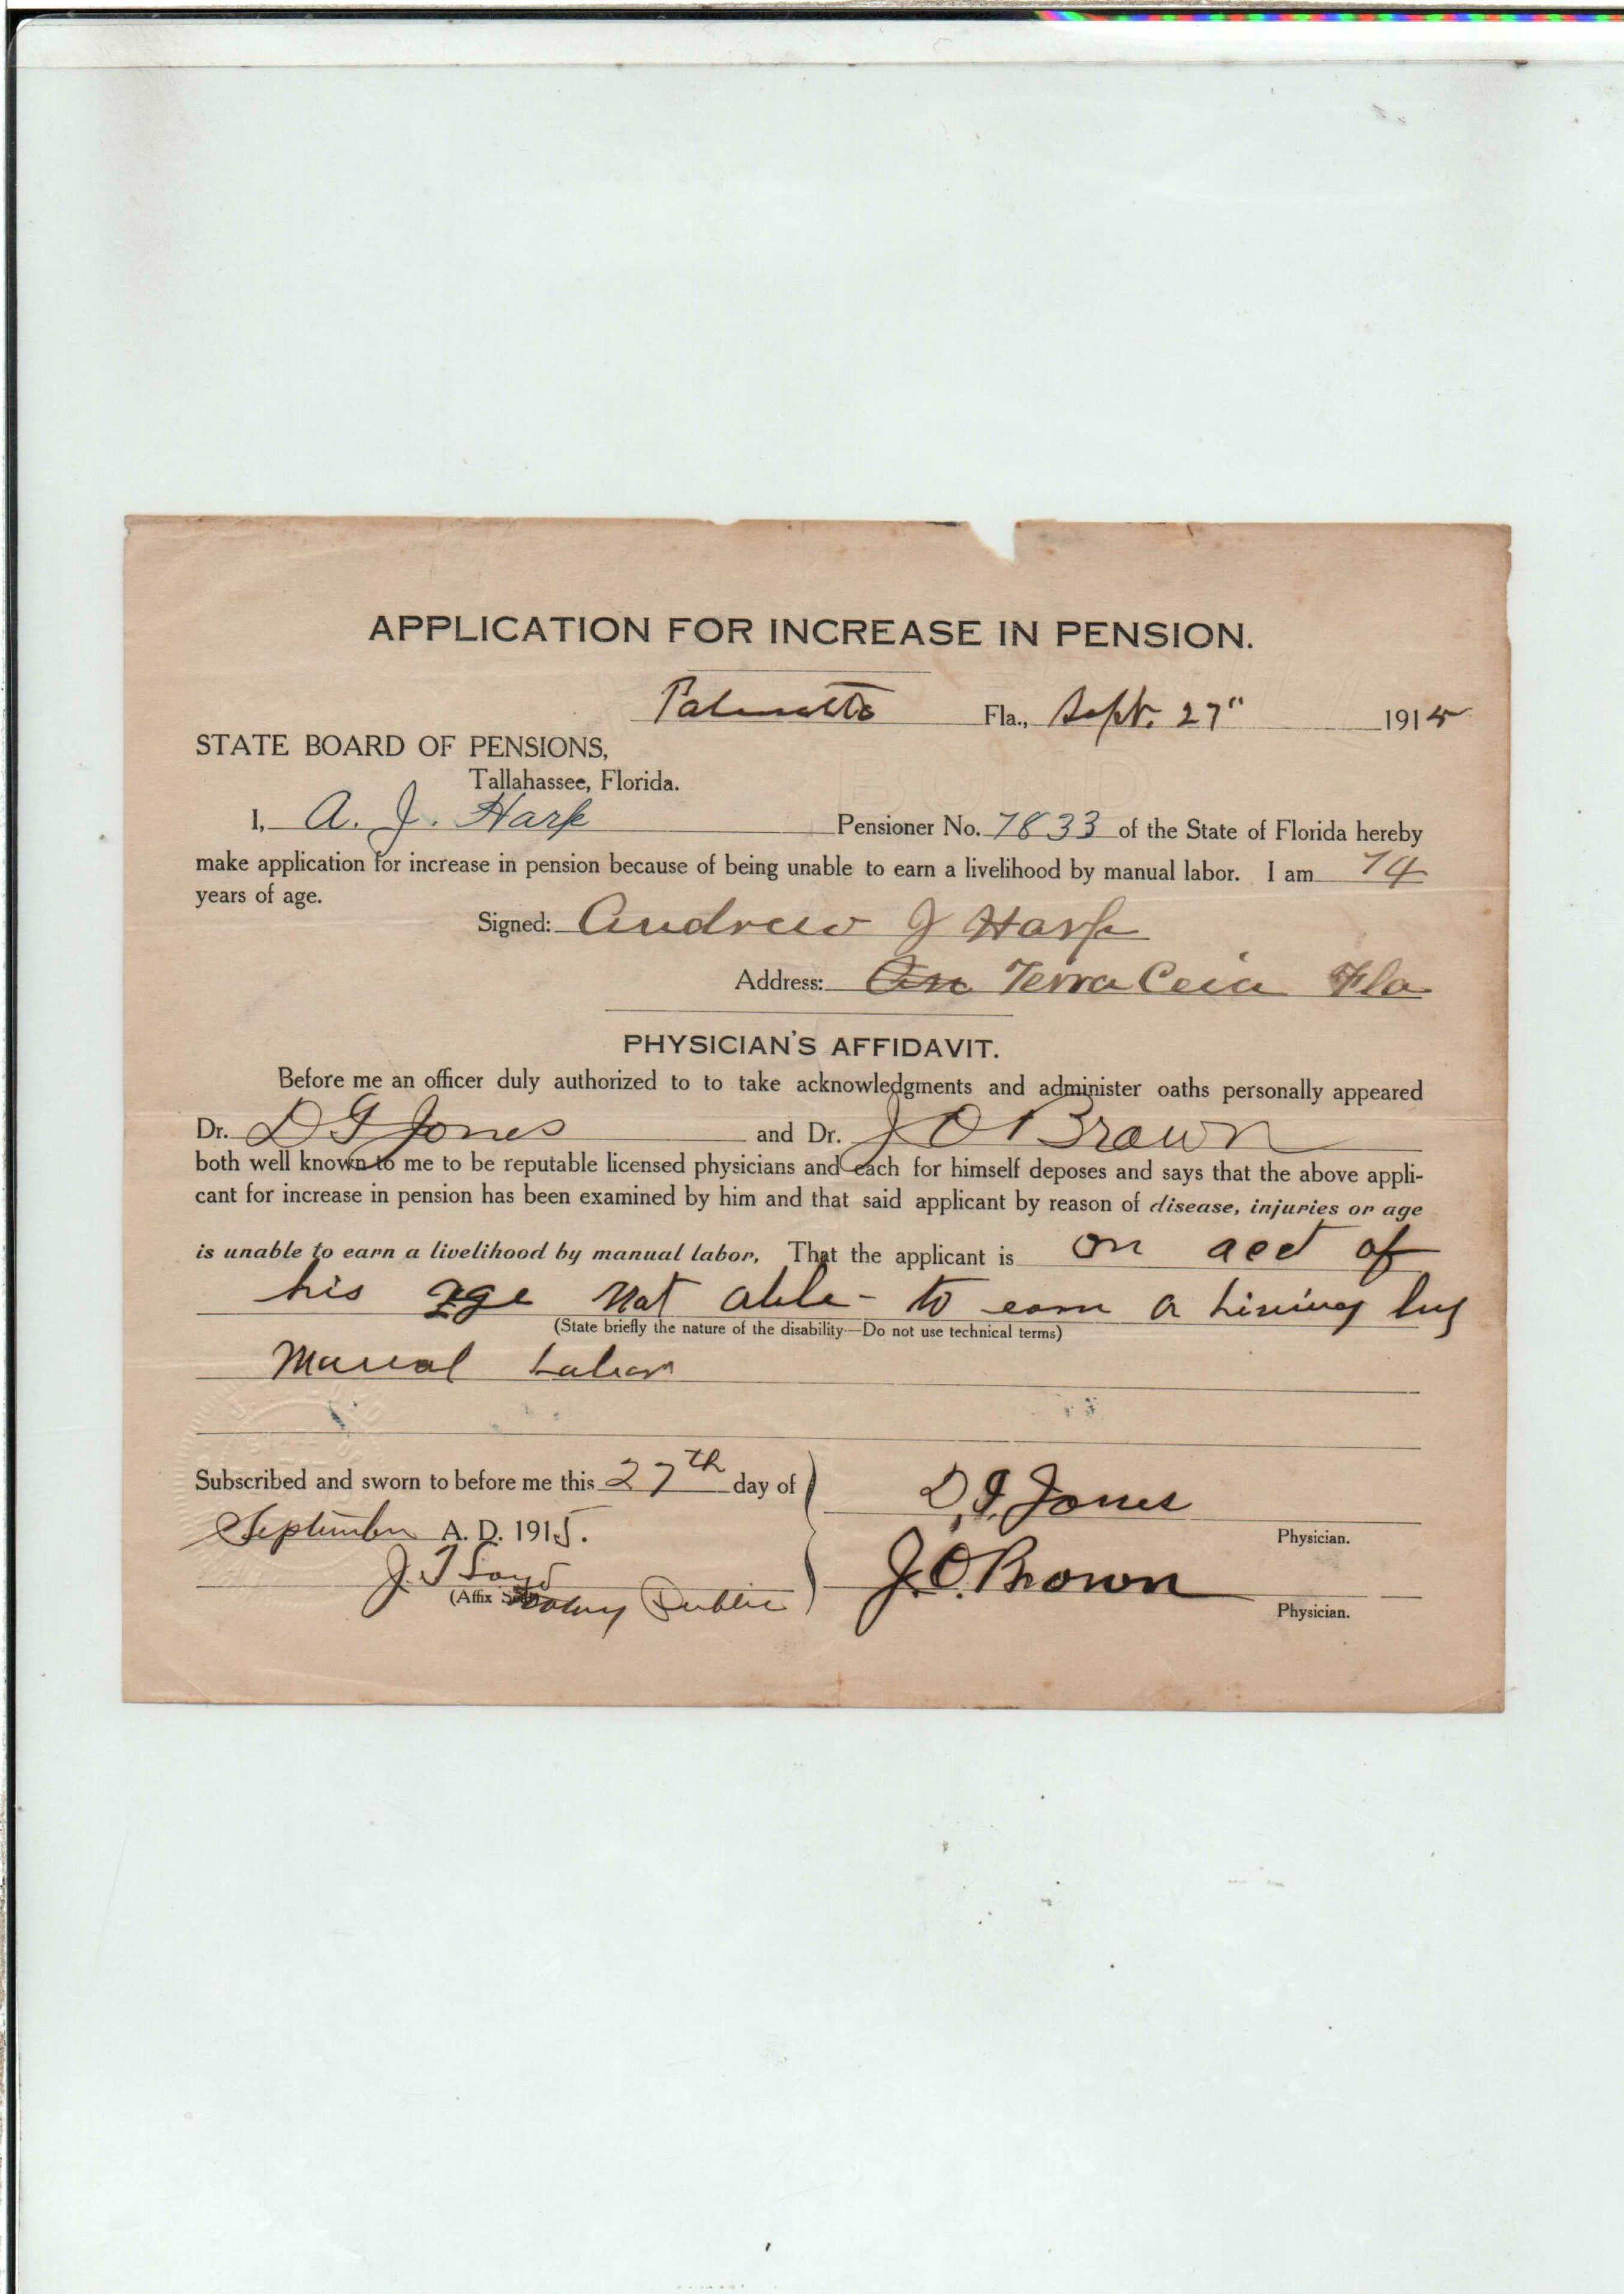 APPLICATION FOR INCREASE IN PENSION.
Palmetto Fla., Sept. 27" 1915
STATE BOARD OF PENSIONS,
Tallahassee, Florida.
I, A. J. Harp Pensioner No. 7833 of the State of Florida hereby
make application for increase in pension because of being unable to earn a livelihood by manual labor. I am 74
years of age.
Signed: Andrew J Harp
Address: Terra Ceia Fla
PHYSICIAN'S AFFIDAVIT.
Before me an officer duly authorized to to take acknowledgments and administer oaths personally appeared
Dr. D G Jones and Dr. J O Brown
both well known to me to be reputable licensed physicians and each for himself deposes and says that the above appli-
cant for increase in pension has been examined by him and that said applicant by reason of disease, injuries or age
is unable to earn a livelihood by manual labor, That the applicant is on acct of
his age Not able - to earn a Living by
(State briefly the nature of the disability—Do not use technical terms)
Manual Labor
Subscribed and sworn to before me this 27th day of
D. G. Jones
Physician.
September A. D. 1915.
J. T.
(Affix Notary Public
J. O. Brown
Physician.